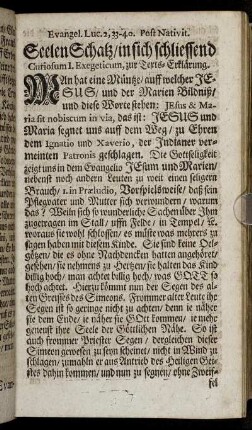 Evangel. Luc. 2, 33-40. Post Nativit.
Seelen Schatz / in sich schliessend
Curiosum I. Exegeticum, zur Texts-Erklärung.
MAn hat eine Müntze / auff welcher JE-
SUS / und der Marien Bildniß /
und diese Worte stehen: JEsus & Ma-
ria sit nobiscum in via, das ist: JESUS und
Maria segnet uns auff dem Weg / zu Ehren
dem Ignatio und Xaverio, der Indianer ver-
meinten Patronis geschlagen. Die Gottseligkeit
zeigt uns in dem Evangelio JEsum und Marien /
nebenst noch andern Leuten zu weit einen seligern
Brauch / 1. in Præludio, Vorspielsweise / daß sein
Pflegvater und Mutter sich verwundern / warum
das? Weiln sich so wunderliche Sachen über Ihm
zugetragen im Stall / uffm Felde / in Tempel / &c.
woraus sie wohl schlossen / es müste was mehrers zu
sagen haben mit diesem Kinde. Sie sind keine Oel-
götzen / die es ohne Nachdencken hatten angehöret /
gesehen / sie nehmens zu Hertzen / sie halten das Kind
billig hoch / man achtet billig hoch / was GOTT so
hoch achtet. Hierzu kömmt nun der Segen des al-
ten Greisses des Simeons. Frommer alter Leute ihr
Segen ist so geringe nicht zu achten / denn je näher
sie dem Ende / je näher sie GOtt kommen / je mehr
geneust ihre Seele der Göttlichen Nähe. So ist
auch frommer Priester Segen / dergleichen dieser
Simeon gewesen zu seyn scheinet / nicht in Wind zu
schlagen / zumahln er aus Antrieb des Heiligen Gei-
stes dahin kommen / und nun zu segnen / ohne Zweif-
fel